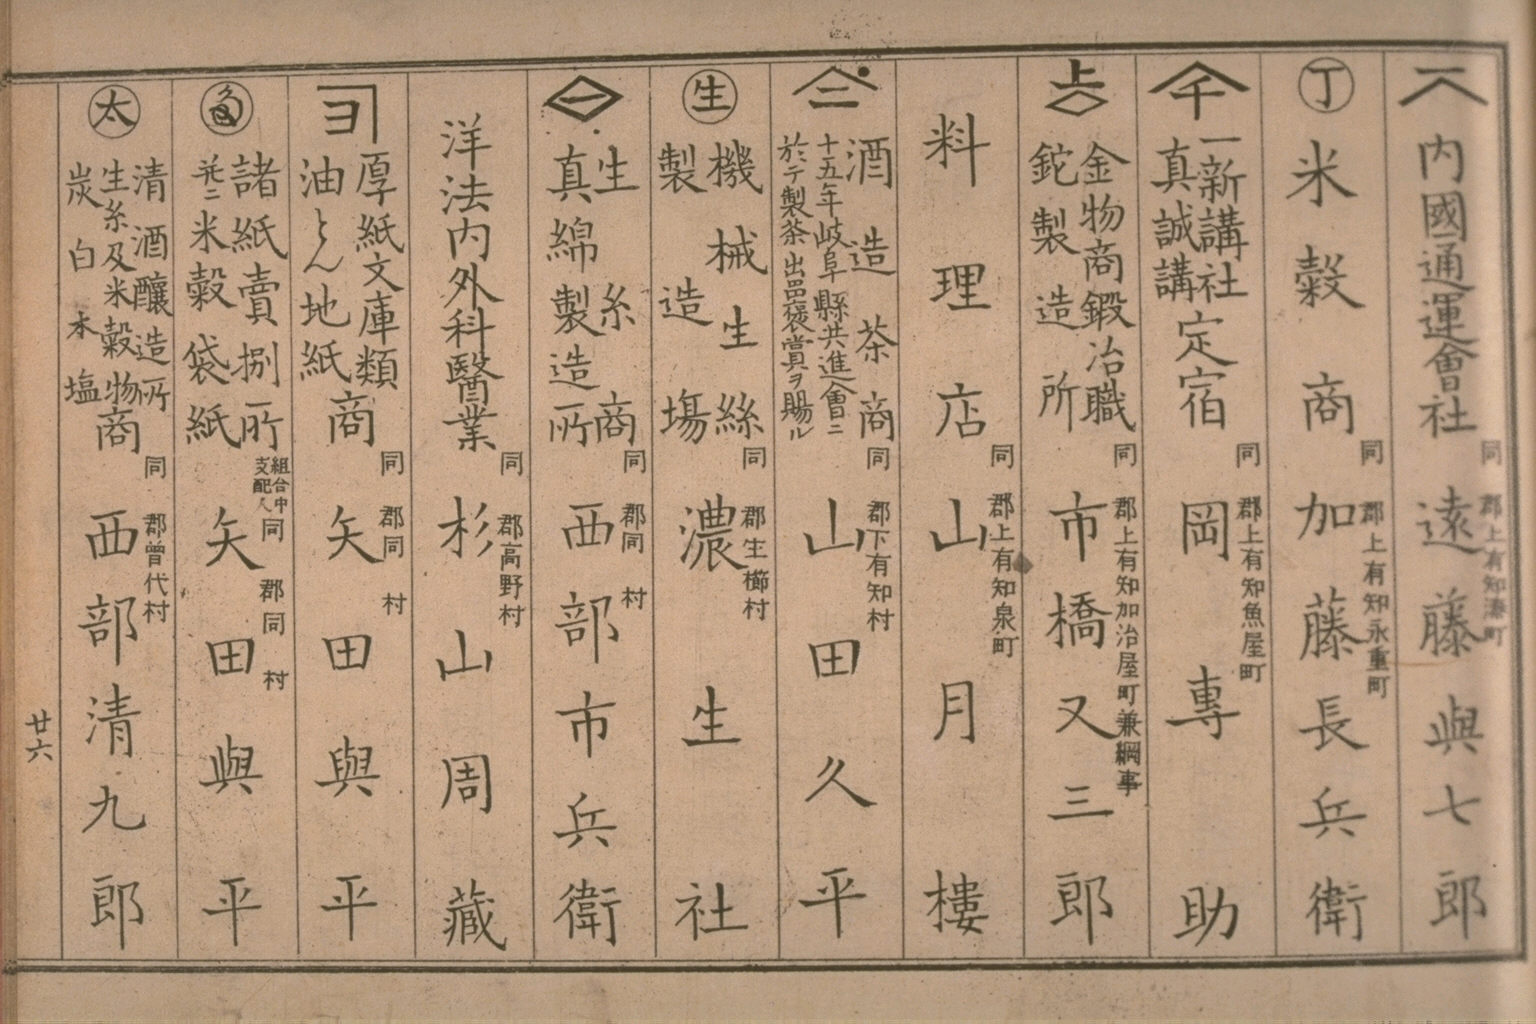 一
内國通運會社
同
郡上有知湊町
遠藤與七郎
丁
米穀商
同
郡上有知永重町
加藤長兵衛
千
一新講社
真誠講
定宿
同
郡上有知魚屋町
岡專助
上
金物商鍛冶職
鉈製造所
同
郡上有知加治屋町兼綱事
市橋又三郎
料理店
同
郡上有知泉町
山月樓
二
酒造茶商
十五年岐阜縣共進會ニ
於テ製茶出品褒賞ヲ賜ル
同
郡下有知村
山田久平
生
機械生絲
製造場
同
郡生櫛村
濃生社
一
生糸商
真綿製造所
同
郡同村
西部市兵衛
洋法内外科醫業
同
郡高野村
杉山周藏
ヨ
厚紙文庫類
油とん地紙
商
同
郡同村
矢田與平
諸紙賣捌所
並ニ米穀袋紙
組合中
支配人
同
郡同村
矢田與平
太
清酒釀造所
生糸及米穀物商
炭白木塩
同
郡曾代村
西部清九郎
廿六